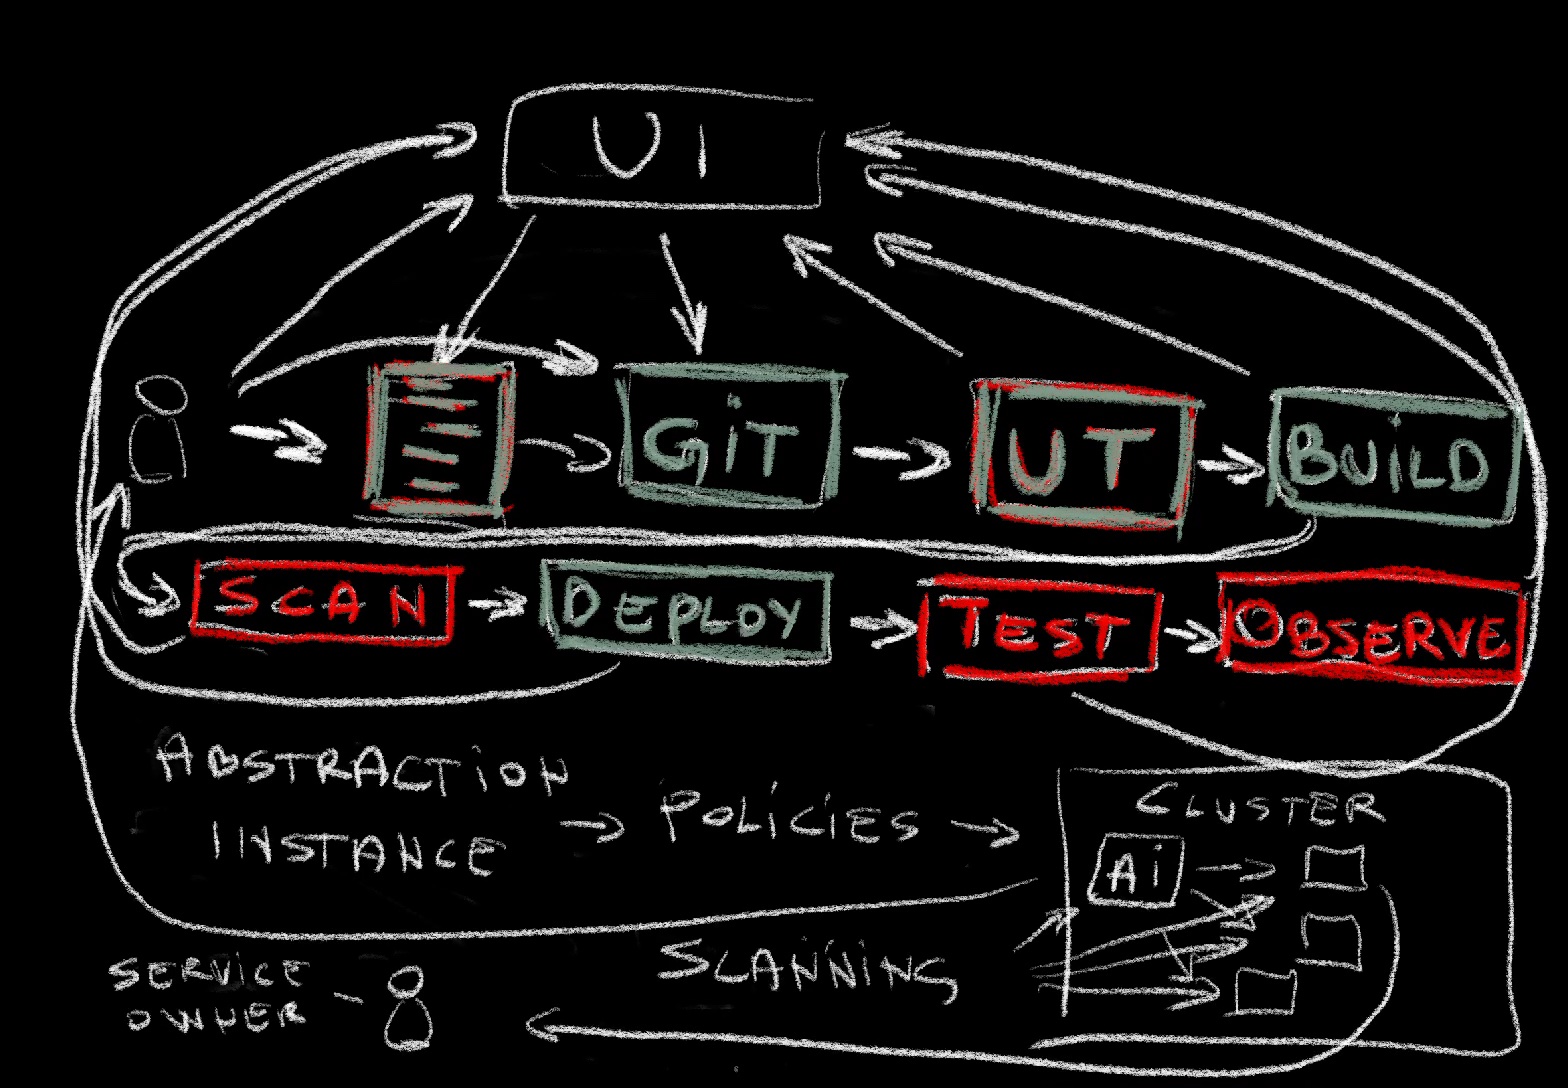 UI
GiT
UT
BUiLD
SCAN
DEPLOY
TEST
OBSERVE
ABSTRACTiON
INSTANCE
POLiCiES
CLUSTER
Ai
SERVICE
OWNER
SCANNiNG